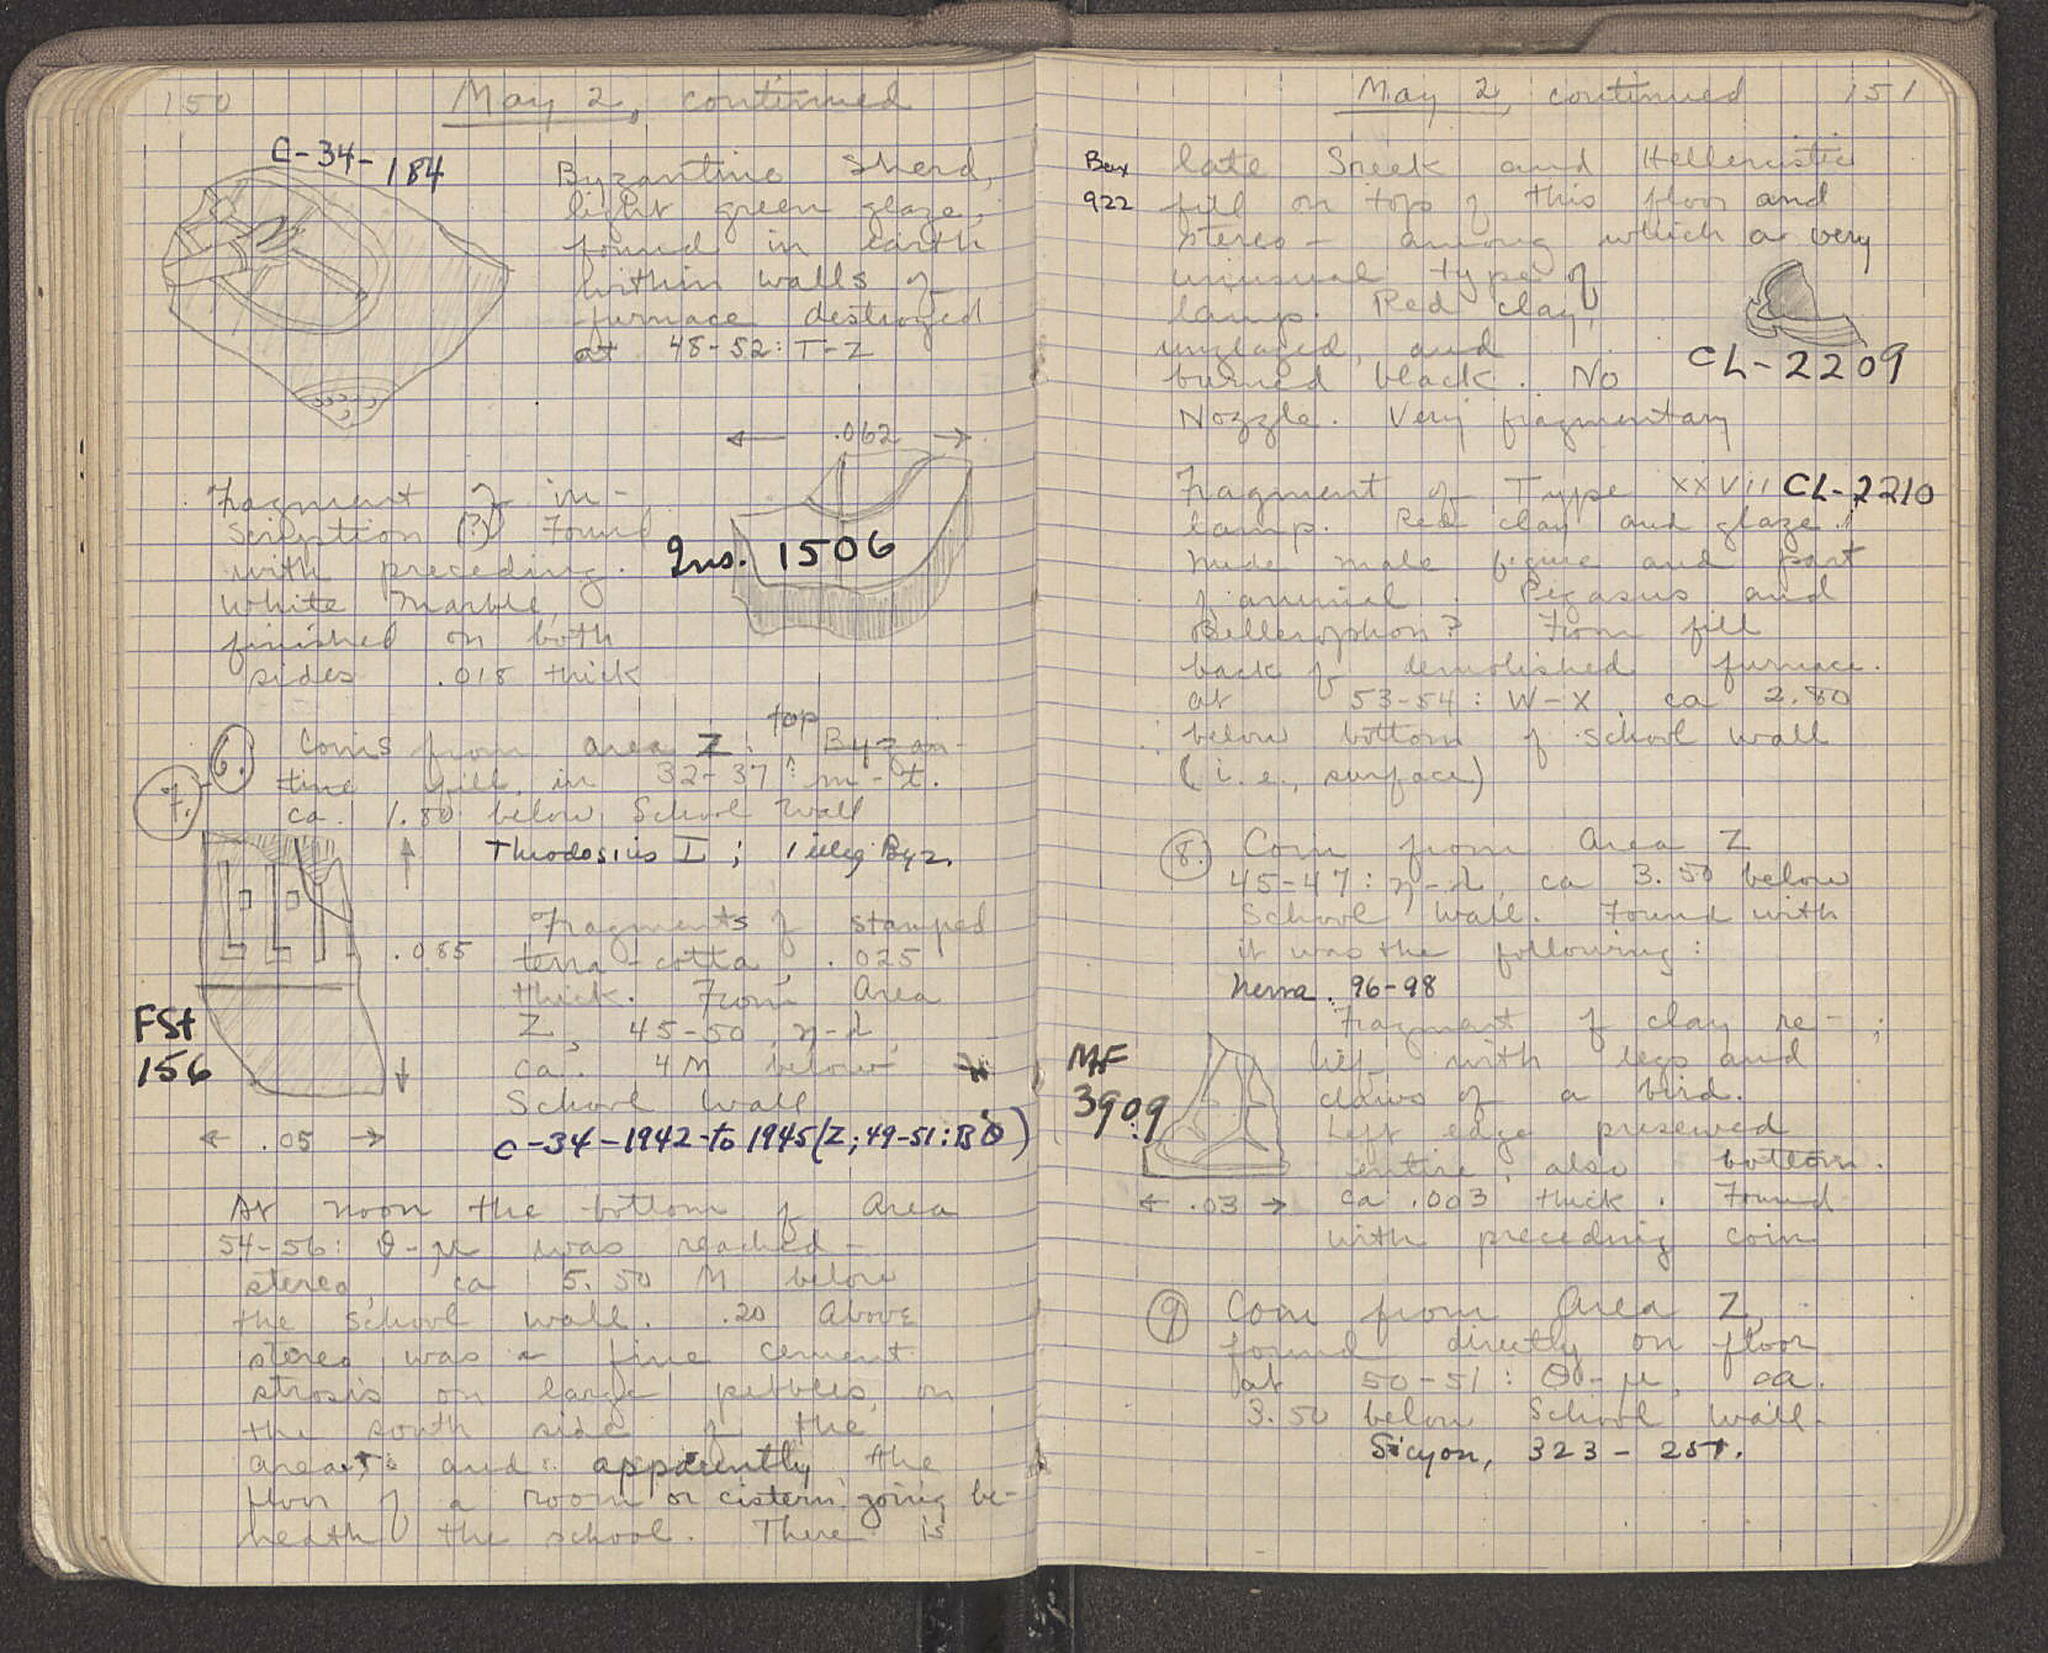 150 May 2, continued
C-34-184
Byzantine sherd,
light green glaze,
found in earth
within walls of
furnace destroyed
at 48-52: T-Z
← .062 →
Fragment of in-
scription (?) Found
with preceding.
White marble,
finished on both
sides .018 thick
Ins. 1506
6. 7. Coins from area Z: top Byzan-
tine fill, in 32-37: m-t.
ca. 1.80 below School Wall
Theodosius I; 1 illeg Byz.
Fragments of stamped
terra-cotta, .025
thick. From Area
Z, 45-50, η-λ,
ca. 4 M below
School Wall
.085
FSt
156
← .05 →
C-34-1942-to 1945 (Z; 49-51: BΘ)
At noon the bottom of Area
54-56: θ-μ was reached -
stereo, ca 5.50 M below
the School wall. .20 Above
stereo was a fine cement
strosis on large pebbles, on
the south side of the
area, and apparently the
floor of a room or cistern going be-
neath the school. There is
May 2, continued 151
Box
922
late Greek and Hellenistic
fill on top of this floor and
stereo - among which a very
unusual type of
lamp. Red clay,
unglazed, and
burned black. No
Nozzle. Very fragmentary
CL-2209
Fragment of Type XXVII CL-2210
lamp. Red clay and glaze.
Nude male figure and part
of animal. Pegasus and
Bellerophon? From fill
back of demolished furnace.
at 53-54: W-X ca 2.80
below bottom of School wall
(i.e., surface)
8. Coin from Area Z
45-47: η-λ, ca 3.50 below
School wall. Found with
it was the following:
Nerva. 96-98
Fragment of clay re-
lief with legs and
claws of a bird.
Left edge preserved
entire, also bottom.
ca .003 thick. Found
with preceding coin
MF
3909
← .03 →
9 Coin from Area Z,
found directly on floor
at 50-51: Θ-μ, ca.
3.50 below School wall.
Sicyon, 323-251.